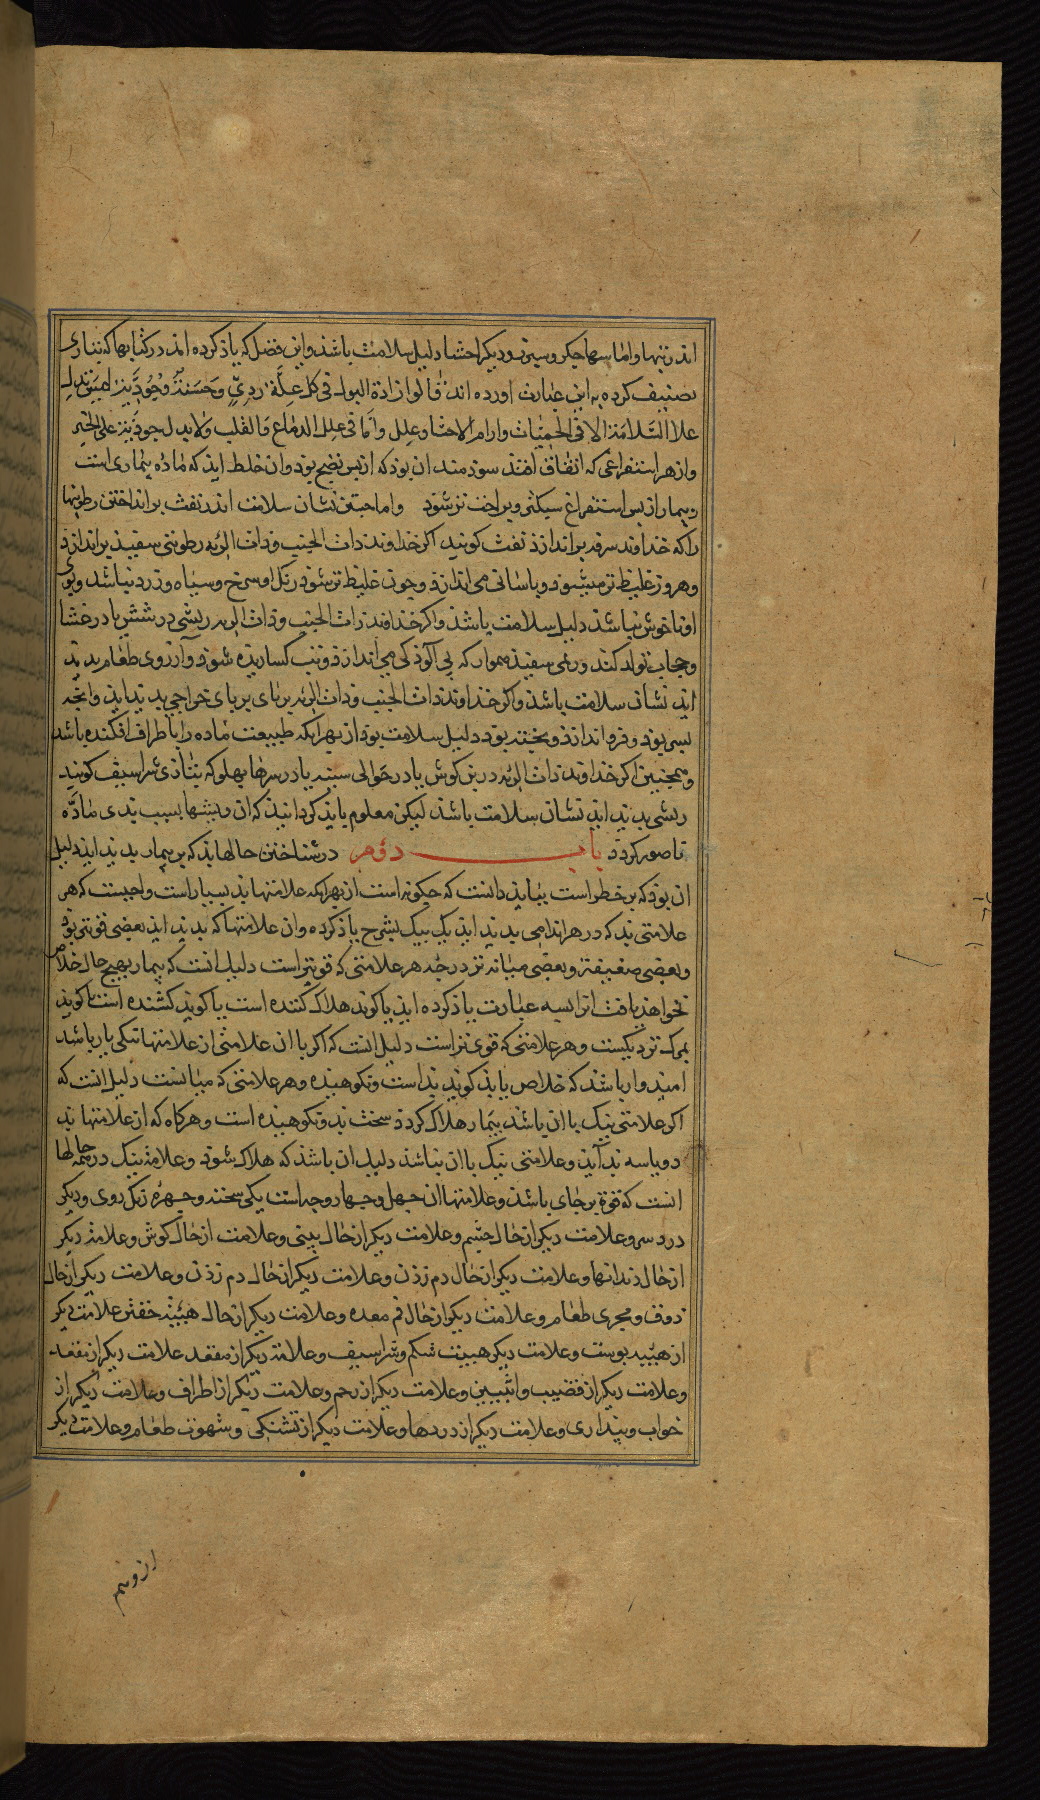 اندر تبها واماسها جکر وسپرز ودیکر احشا دلیل سلامت باشذ واین فصل که یاذ کرده اند در کتابها که بتازی
تصنیف کرده به این عبارت اورده اند قالوا
علا السلامة الا فی الحمیات واورام الاحشا وعلل واما فی علل الدماغ والقلب ولا یدل جودته علی الخیر
وازهر استفراغی که اتفاق افتذ سوذمند ان بوذ که از پس نضج بوذ وان خلط ایذ که ماده بیماری است
وبیمار از پس استفراغ سبکتر وبراحت تر شوذ واما جستن نشان سلامت اندر نفث برانداختن رطوبتها
را که خذاوند سرفه براندازذ نفث کویند اکر خذاوند ذات الجنب وذات الریه رطوبتی سفیذ براندازذ
وهر روز غلیظ تر میشوذ وباسانی می اندازذ وجون غلیظ تر شوذ رنک او سرخ وسیاه وزرد نباشد وبوی
او ناخوش نباشذ دلیل سلامت باشذ واکر خذاوند ذات الجنب وذات الریه ریشی در شش یا در غشا
وحجاب تولد کند وریمی سفیذ هموار که بی آکوذکی می اندازذ وتب کسارنده شوذ وآرزوی طعام بدید
ایذ نشان سلامت باشذ واکر خذاوند ذات الجنب وذات الریه بر پای خراجی بدید ایذ وانجه
بسر بوذ وفرو اندازذ وپخته بوذ دلیل سلامت بوذ از بهر انکه طبیعت ماده را باطراف افکنده باشد
وهمجنین اکر خذاوند ذات الریه در بن کوش یا در حوالی سینه یا در سرها پهلو که بتازی شراسیف کویند
ریشی بدید ایذ نشان سلامت باشذ لیکن معلوم بایذ کردانیذ که ان ریشها بسبب بدی مادّه
ناصور کردد باب دوم در شناختن حالها بذ که بر بیمار بدید ایذ دلیل
ان بوذ که بر خطر است ببایذ دانست که جکونه است از بهر انکه علامتها بذ بسیار است واجبست که هر
علامتی بذ که در هر اندامی بدید ایذ یک بیک بشرح یاذ کرده وان علامتها که بدید ایذ بعضی قوی‌تر بوذ
وبعضی ضعیفة وبعضی میانه تر درجه هر علامتی که قوی‌تر است دلیل انست که بیمار بهیج حال خلاص
نخواهد یافت انرا بسه عبارت یاذ کرده ایذ یا کوند هلاک کننده است یا کویذ کشنده است یا کویذ
بمرک نزدیکست وهر علامتی که قوی تر است دلیل انست که اکر با ان علامتی از علامتها نیکی یار باشد
امیذوار باشذ که خلاص یابذ کویذ بذ است ونکوهیده وهر علامتی که میانست دلیل انست که
اکر علامتی نیک با ان باشذ بیمار هلاک کردذ سخت بذ ونکوهیده است وهرکاه که از علامتها بذ
دو یا سه بذ آیذ وعلامتی نیک با ان نباشذ دلیل ان باشذ که هلاک شوذ وعلامة نیک در همه حالها
انست که قوة بر جای باشذ وعلامتها ان جهل وجهار وجه است یکی سحنه وجهره رنک روی ودیکر
درد سر وعلامت دیکر از حال جشم وعلامت دیکر از حال بینی وعلامت از حال کوش وعلامة دیکر
از حال دندانها وعلامت دیکر از حال دم زذن وعلامت دیکر از حال دم زذن وعلامت دیکر از حال
ذوق ومجری طعام وعلامت دیکر از حال فم معده وعلامت دیکر از حال هیئة خفتن علامت دیکر
از هیئه پوست وعلامت دیکر هیبت شکم وشراسیف وعلامة دیکر از مقعد علامت دیکر از مقعد
وعلامت دیکر از قضیب وانثیین وعلامت دیکر از رحم وعلامت دیکر از اطراف وعلامت دیکر از
خواب وبیداری وعلامت دیکر از دردها وعلامت دیکر از تشنکی وشهوت طعام وعلامت دیکر